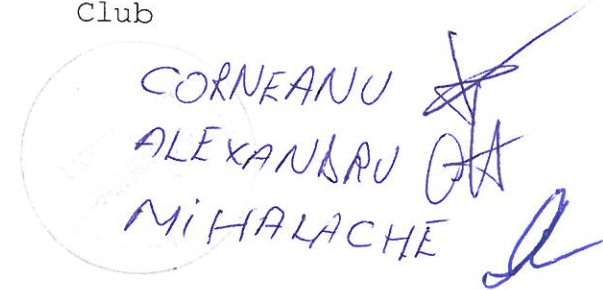 Club
CORNEANU
ALEXANDRU
MiHALACHE